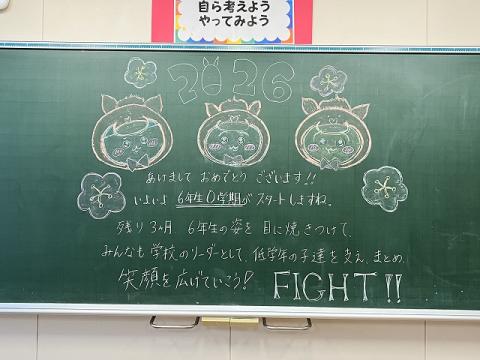 自ら考えよう
やってみよう
2026
あけまして おめでとう ございます!!
いよいよ 6年生0学期がスタートしますね。
残り3ヵ月 6年生の姿を目に焼きつけて、
みんなも学校のリーダーとして、低学年の子達を支え、まとめ、
笑顔を広げていこう! FIGHT!!